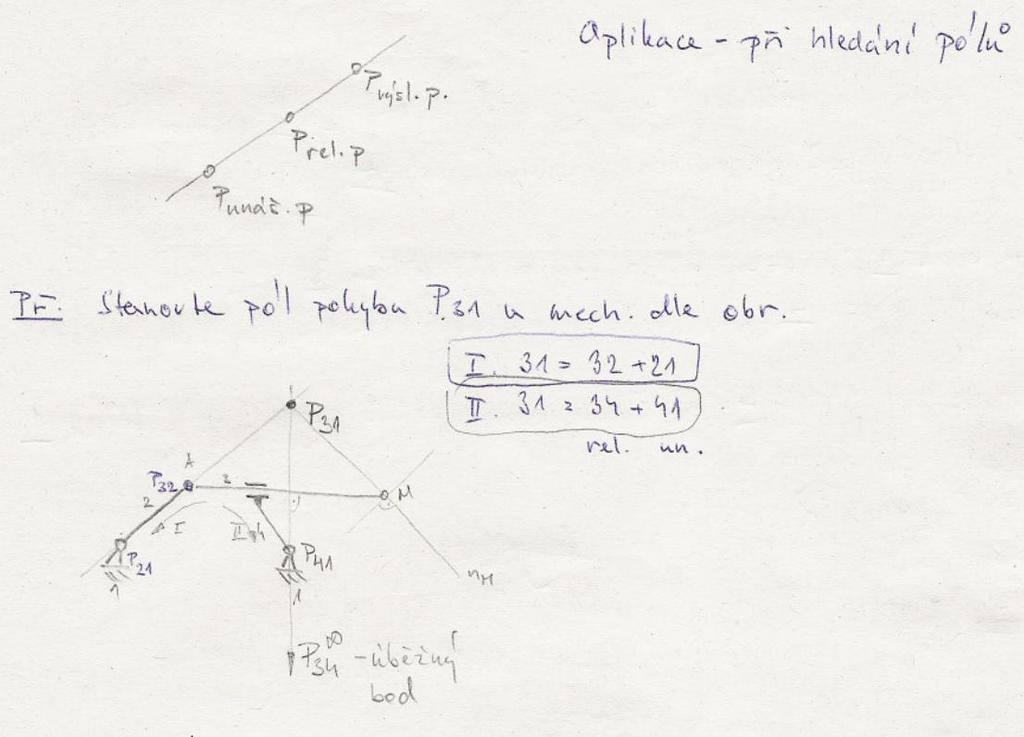 Aplikace - při hledání pólů
Pvýsl. p.
Prel. p
Punáš. p
Př. Stanovte pól pohybu P31 u mech. dle obr.
I. 31 = 32 + 21
II. 31 = 34 + 41
rel. un.
P31
A
P32
3
M
2
I
II
4
P21
P41
1
1
nM
P34∞ - úběžný
bod